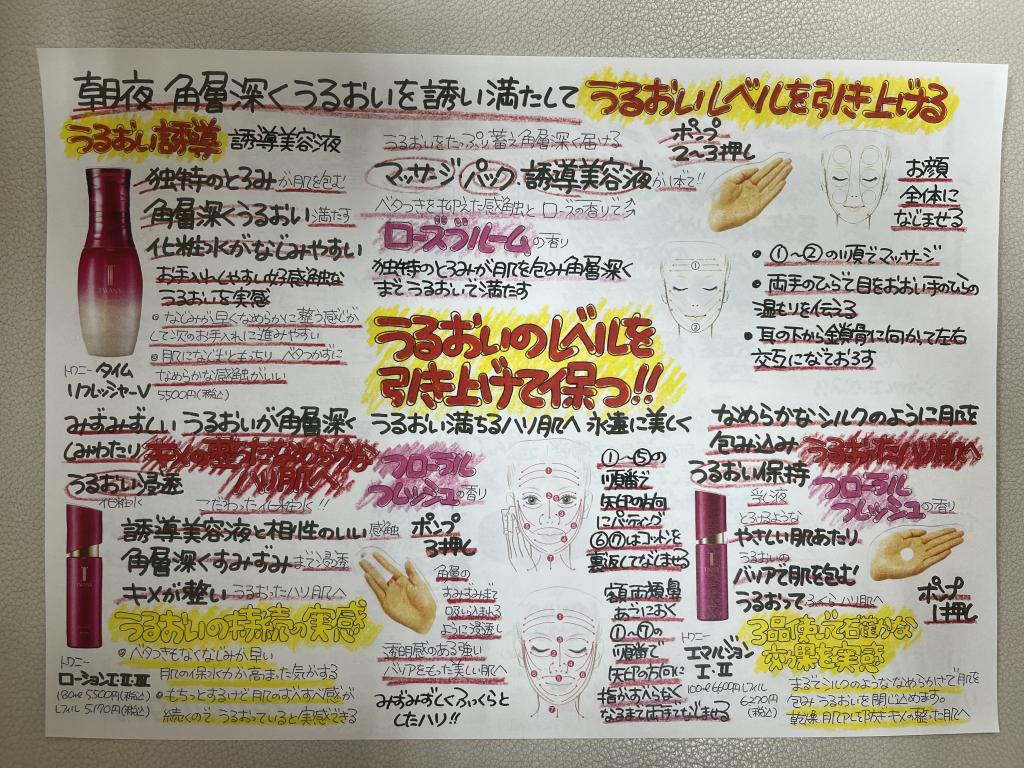 朝夜 角層深くうるおいを誘い満たして うるおいレベルを引き上げる
うるおい誘導 誘導美容液
独特のとろみが肌を包む
角層深くうるおい満たす
化粧水がなじみやすい
お手入れしやすい好感触な
うるおいを実感
なじみが早くなめらかに整う感じが
して次のお手入れに進みやすい
なめらかな感触がいい
トワニー タイム
リフレッシャーV 5500円(税込)
TWANY
うるおいをたっぷり蓄え角層深く届ける
マッサージ パック 誘導美容液が1本で!!
ベタつきを抑えた感触と ローズの香りで
ローズブルームの香り
独特のとろみが肌を包み角層深く
までうるおいで満たす
ポンプ
2〜3押し
お顔
全体に
なじませる
①
②
①〜②の順でマッサージ
両手のひらで目をおおい手のひらの
温もりを伝える
耳の下から鎖骨に向かって左右
交互になでおろす
うるおいのレベルを
引き上げて保つ!!
うるおい満ちるハリ肌へ 永遠に美しく
みずみずしいうるおいが角層深く
しみわたりキメの整ったなめらかな
ハリ肌へ
うるおい浸透
化粧水 こだわった化粧水!!
フローラル
フレッシュの香り
誘導美容液と相性のいい感触
角層深くすみずみまで浸透
キメが整い うるおったハリ肌へ
ポンプ
3押し
うるおいの持続の実感
ベタつきもなくなじみ早い
肌の保水力が高まった気がする
もちっとするけど肌のすべすべ感が
続くので うるおっていると実感できる
トワニー
ローションⅠ・Ⅱ・Ⅲ
180ml 5500円(税込)
レフィル 5170円(税込)
角層の
すみずみまで
吸い込まれる
ように浸透し
透明感のある強い
バリアをもった美しい肌へ
みずみずしくふっくらと
したハリ!!
①〜⑤の
順番で
矢印の方向
にパッティング
⑥⑦はコットンを
裏返してなじませる
額 両頬 鼻
あごにおく
①〜⑦の
順番で
矢印の方向に
指が入らなく
なるまで両手でなじませる
なめらかなシルクのように肌を
包み込み うるおったハリ肌へ
うるおい保持
乳液
フローラル
フレッシュの香り
とろけるような
やさしい肌あたり
うるおいの
バリアで肌を包む
うるおって ふっくらハリ肌へ
ポンプ
1押し
トワニー
エマルジョン
Ⅰ・Ⅱ
100ml 6600円 レフィル
6270円
(税込)
3品使って確かな
効果を実感
まるでシルクのようななめらかさで肌を
包み うるおいを閉じ込めます。
乾燥・肌アレを防ぎキメの整った肌へ